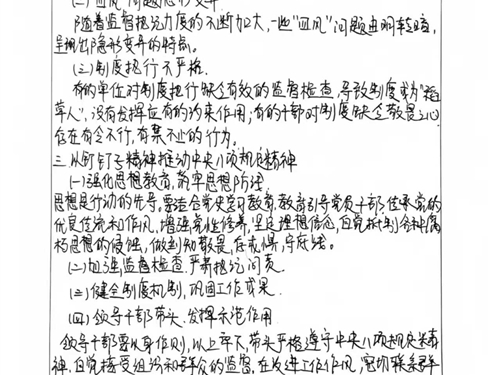 (二)"四风"问题隐形变异
随着监督执纪力度的不断加大,一些"四风"问题由明转暗,
呈现出隐形变异的特点。
(三)制度执行不严格.
有的单位对制度执行缺乏有效的监督检查,导致制度成为"稻
草人",没有发挥应有的约束作用;有的干部对制度缺乏敬畏之心
存在有令不行,有禁不止的行为。
三.以钉钉子精神推动中央八项规定精神
(一)强化思想教育,筑牢思想防线.
思想是行动的先导,要结合党史学习教育,教育引导党员干部传承党的
优良传统和作风,增强党性修养,坚定理想信念,自觉抵制各种腐
朽思想的侵蚀,做到知敬畏、存戒惧、守底线。
(二)加强监督检查.严肃执纪问责
(三)健全制度机制,巩固工作成果.
(四)领导干部带头.发挥示范作用.
领导干部要以身作则,以上率下,带头严格遵守中央八项规定精
神,自觉接受组织和群众的监督,在改进工作作风,密切联系群